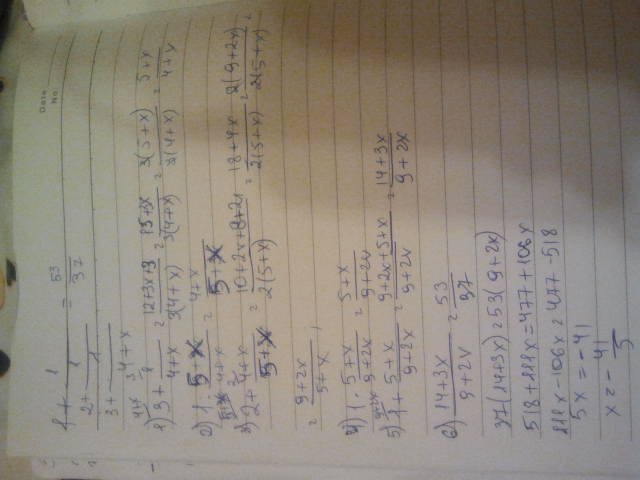 Date
No
1 + 1/(2 + 1/(3 + 1/(4+x))) = 53/37
1) 3 + 1/(4+x) = (12+3x+3)/(3(4+x)) = (15+3x)/(3(4+x)) = 3(5+x)/(2(4+x)) = (5+x)/(4+x)
2) 1 : (5+x)/(4+x) = (4+x)/(5+x)
3) 2 + (4+x)/(5+x) = (10+2x+8+2x)/(2(5+x)) = (18+4x)/(2(5+x)) = 2(9+2x)/(2(5+x)) =
= (9+2x)/(5+x)
4) 1 · (5+x)/(9+2x) = (5+x)/(9+2x)
5) 1 + (5+x)/(9+2x) = (9+2x+5+x)/(9+2x) = (14+3x)/(9+2x)
6) (14+3x)/(9+2x) = 53/37
37(14+3x) = 53(9+2x)
518+111x = 477+106x
111x-106x = 477-518
5x = -41
x = - 41/5